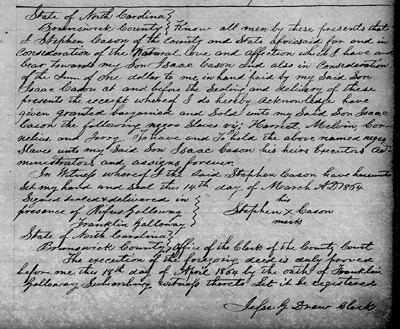 State of North Carolina }
Brunswick County } Know all men by these presents that
I Stephen Cason of the County and State aforesaid for and in
Consideration of the Natural love and affection which I have and
bear towards my Son Isaac Cason and also in Consideration
of the Sum of one dollar to me in hand paid by my Said Son
Isaac Cason at and before the Sealing and delivery of these
presents the receipt whereof I do hereby acknowledge have
given granted bargained and Sold unto my Said Son Isaac
Cason the following negro Slaves viz; Harriet, Melvin, Cor-
nelius, and Jerry. To have and to hold the above named negro
Slaves unto my Said Son Isaac Cason his heirs Executors ad-
ministrators and assigns forever.
In Witness whereof I the said Stephen Cason have hereunto
Set my hand and Seal this 14th day of March AD 1864
Signed sealed & delivered in } his
presence of Rufus Galloway } Stephen X Cason
Franklin Galloway } mark
State of North Carolina }
Brunswick County } Office of the Clerk of the County Court
The execution of the foregoing deed is duly proved
before me this 18th day of April 1864 by the oath of Franklin
Galloway Subscribing witness thereto Let it be registered
G Drew Clerk